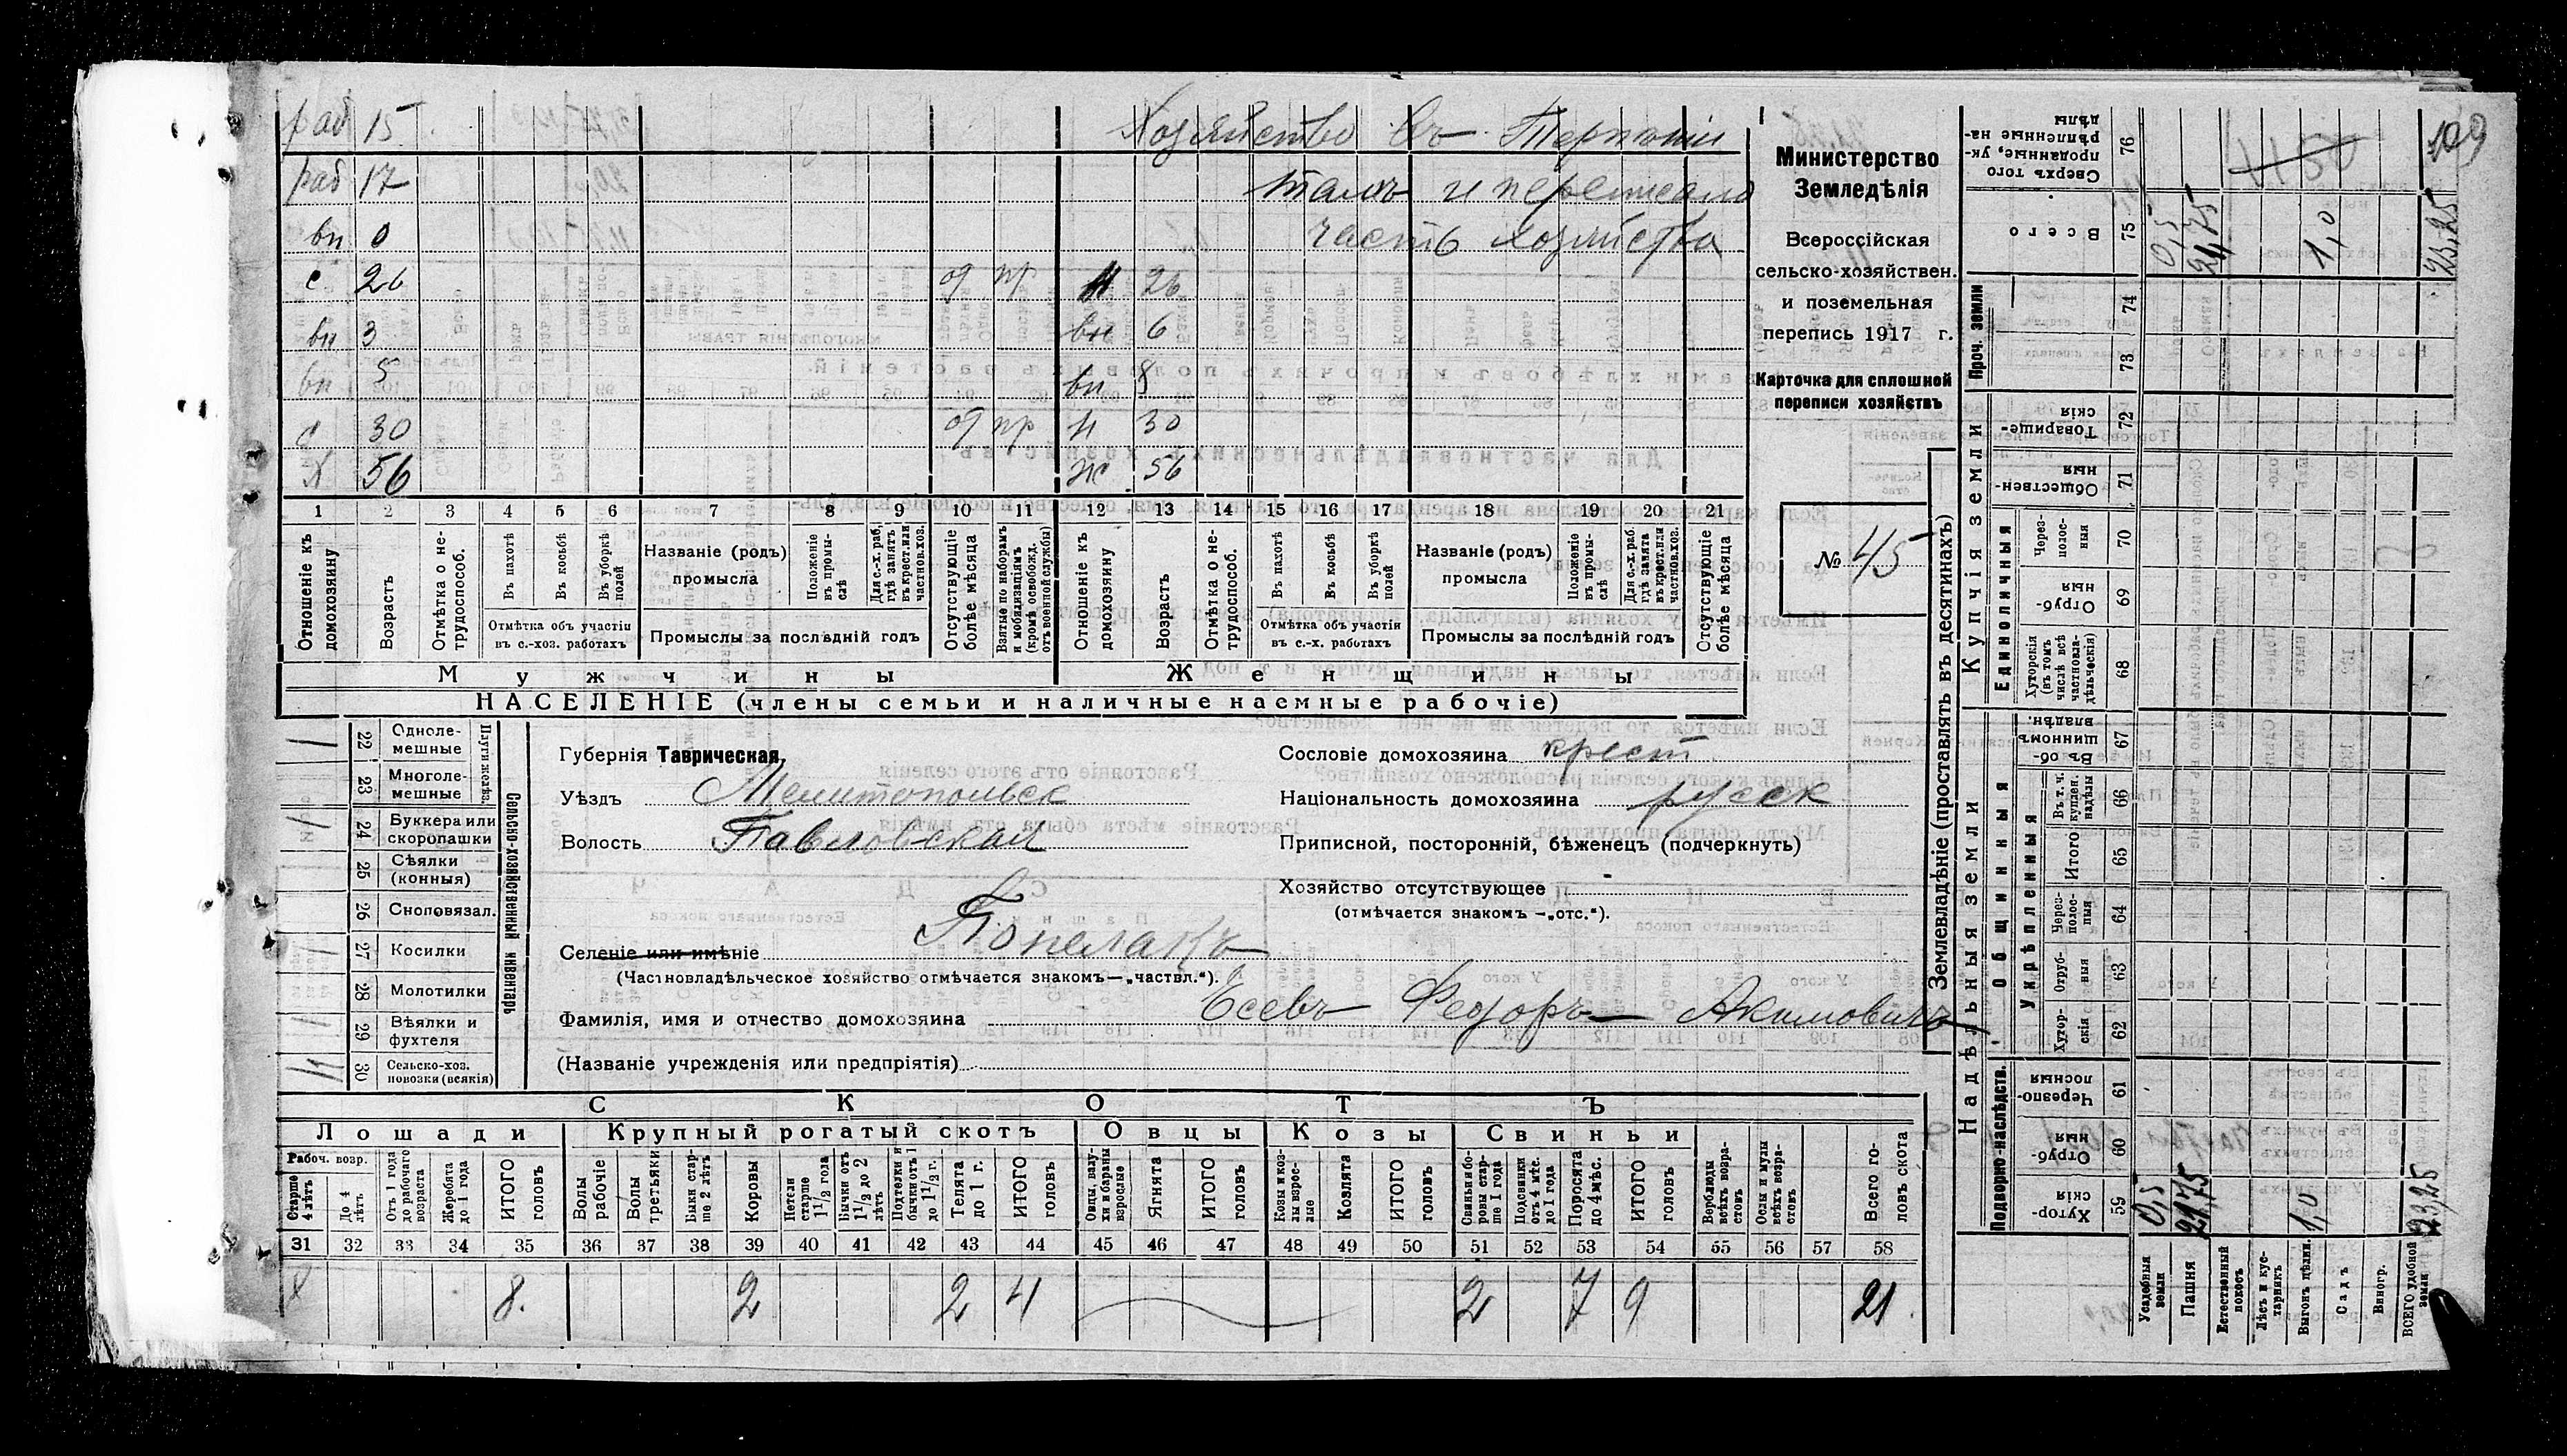 раб 15
Хозяйство въ Терпѣніи
раб 17
тамъ и переписано
вн 0
часть хозяйства
с 26 от пр н 26
вн 3 вн 6
вн 5 вн 8
с 30 от пр н 30
х 56 ж 56
1 2 3 4 5 6 7 8 9 10 11 12 13 14 15 16 17 18 19 20 21
Отношеніе къ домохозяину
Возрастъ
Отмѣтка о нетрудоспособ.
Въ пахотѣ
Въ косьбѣ
Въ уборкѣ полей
Отмѣтка объ участіи въ с.-хоз. работахъ
Названіе (родъ) промысла
Положеніе въ промыслѣ
Для с.-х. раб, гдѣ занятъ въ крест. или частнов. хоз.
Промыслы за послѣдній годъ
Отсутствующіе болѣе мѣсяца
Взятые по наборамъ и мобилизаціямъ (кромѣ освобожд. отъ военной службы)
Отношеніе къ домохозяину
Возрастъ
Отмѣтка о нетрудоспособ.
Въ пахотѣ
Въ косьбѣ
Въ уборкѣ полей
Отмѣтка объ участіи въ с.-х. работахъ
Названіе (родъ) промысла
Положеніе въ промыслѣ
Для с.-х. раб гдѣ занята въ крест. или частнов. хоз.
Промыслы за послѣдній годъ
Отсутствующіе болѣе мѣсяца
Мужчины
Женщины
НАСЕЛЕНІЕ (члены семьи и наличные наемные рабочіе)
Министерство
Земледѣлія
Всероссійская
сельско-хозяйствен.
и поземельная
перепись 1917 г.
Карточка для сплошной
переписи хозяйствъ
№ 45
Сельско-хозяйственный инвентарь
Плуги желѣз.
22 Однолемешные 1
23 Многолемешные
24 Буккера или скоропашки 1
25 Сѣялки (конныя)
26 Сноповязал.
27 Косилки 1
28 Молотилки
29 Вѣялки и фухтеля 1
30 Сельско-хоз. повозки (всякія)
Губернія Таврическая.
Уѣздъ Мелитопольск
Волость Павловская
Селеніе или имѣніе Попелакъ
(Частновладѣльческое хозяйство отмѣчается знакомъ—„частвл.“).
Фамилія, имя и отчество домохозяина Есевъ Федоръ Акимовичъ
(Названіе учрежденія или предпріятія)
Сословіе домохозяина крест
Національность домохозяина русск
Приписной, посторонній, бѣженецъ (подчеркнуть)
Хозяйство отсутствующее -
(отмѣчается знакомъ —„отс.“).
СКОТЪ
Лошади
Крупный рогатый скотъ
Овцы
Козы
Свиньи
Рабоч. возр.
Старше 4 лѣтъ
До 4 лѣтъ
Отъ 1 года до рабочаго возраста
Жеребята до 1 года
ИТОГО головъ
Волы рабочіе
Волы третьяки
Быки старше 2 лѣтъ
Коровы
Нетели старше 1½ года
Бычки отъ 1½ до 2 лѣтъ
Подтелки и бычки отъ 1 до 1½ г.
Телята до 1 г.
ИТОГО головъ
Овцы, валухи и бараны взрослые
Ягнята
ИТОГО головъ
Козы и козлы взрослые
Козлята
ИТОГО головъ
Свиньи и боровы старше 1 года
Подсвинки отъ 4 мѣс. до 1 года
Поросята до 4 мѣс.
ИТОГО головъ
Верблюды всѣхъ возрастовъ
Ослы и мулы всѣхъ возрастовъ
Всего головъ скота
31 32 33 34 35 36 37 38 39 40 41 42 43 44 45 46 47 48 49 50 51 52 53 54 55 56 57 58
8 8. 2 2 4 2 7 9 21
Землевладѣніе (проставлять въ десятинахъ)
Надѣльныя земли
Купчія земли
Проч. земли
Подворно-наслѣдств.
Общинныя
Укрѣпленныя
Единоличныя
Сверхъ того проданные, укрѣпленные надѣлы 76
Всего 75
74
73
Товарищескія 72
Общественныя 71
Черезполосныя 70
Отрубныя 69
Хуторскія (въ томъ числѣ всѣ частновладѣльческія) 68
Въ общинномъ владѣн. 67
Въ т. ч. куплен. надѣлы 66
Итого 65
Черезполосныя 64
Отрубныя 63
Хуторскія 62
Черезполосныя 61
Отрубныя 60
Хуторскія 59
Усадебныя земли 0,5 0,5
Пашня 21,75 21,75
Естественный покосъ
Лѣсъ и кустарникъ
Выгонъ цѣлин. 1,0 1,0
Садъ
Виногр.
ВСЕГО удобной земли 23,25 23,25
109